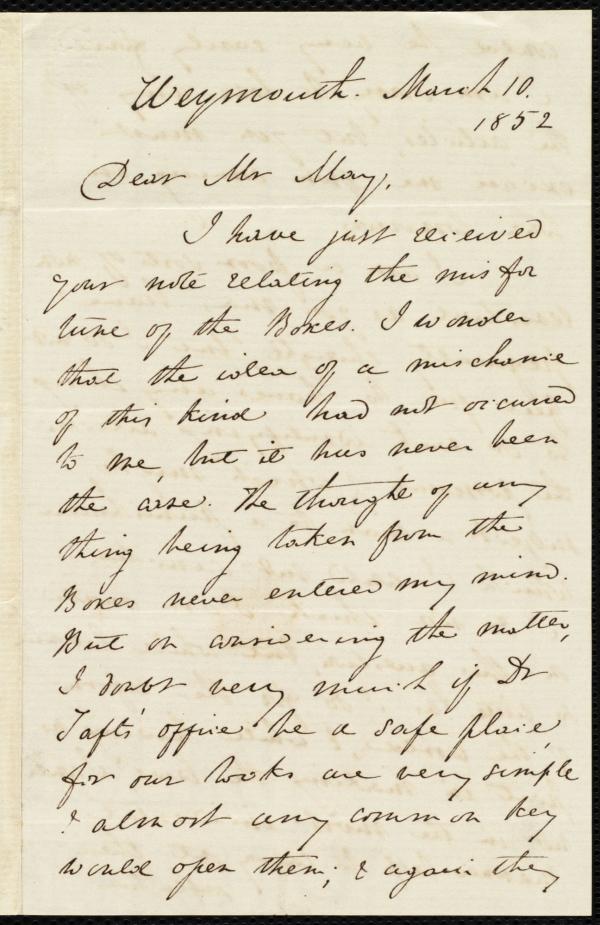 Weymouth. March 10.
1852
Dear Mr May,
I have just received
your note relating the misfor
tune of the Boxes. I wonder
that the idea of a mischance
of this kind had not occurred
to me, but it has never been
the case. The thought of any
thing being taken from the
Boxes never entered my mind.
But on considering the matter,
I doubt very much if Dr
Tafts' office be a safe place,
for our locks are very simple
& almost any common key
would open them; & again they